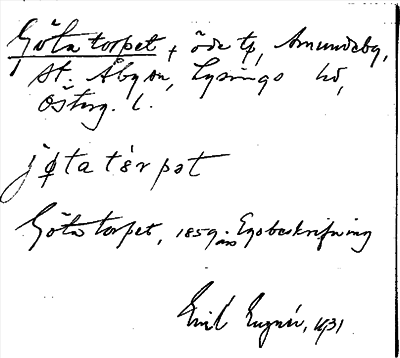 Götatorpet, + öde tp, Amundebg,
St. Åby sn, Lysings hd,
Österg. l.
jøtatèrpət
Götatorpet, 1859 års Egobeskrifning
Emil 1931